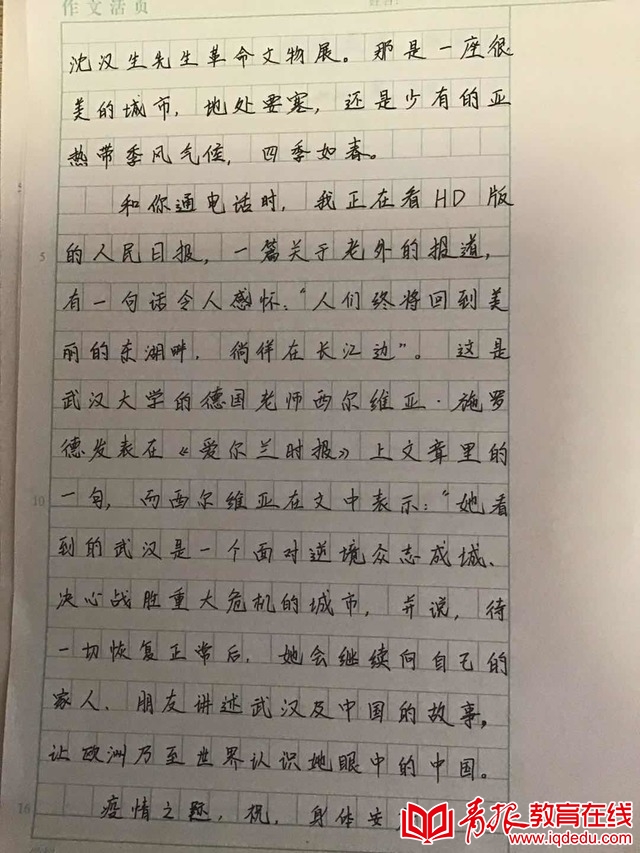 作文活页
沈汉生先生革命文物展。那是一座很
美的城市，地处要塞，还是少有的亚
热带季风气候，四季如春。
和你通电话时，我正在看HD版
5
的人民日报，一篇关于老外的报道，
有一句话令人感怀："人们终将回到美
丽的东湖畔，徜徉在长江边"。这是
武汉大学的德国老师西尔维亚·施罗
德发表在《爱尔兰时报》上文章里的
10
一句，而西尔维亚在文中表示："她看
到的武汉是一个面对逆境众志成城、
决心战胜重大危机的城市，并说，待
一切恢复正常后，她会继续向自己的
家人、朋友讲述武汉及中国的故事。
让欧洲乃至世界认识她眼中的中国。
16
疫情之际，祝，身体安
青报教育在线
www.iqdedu.com